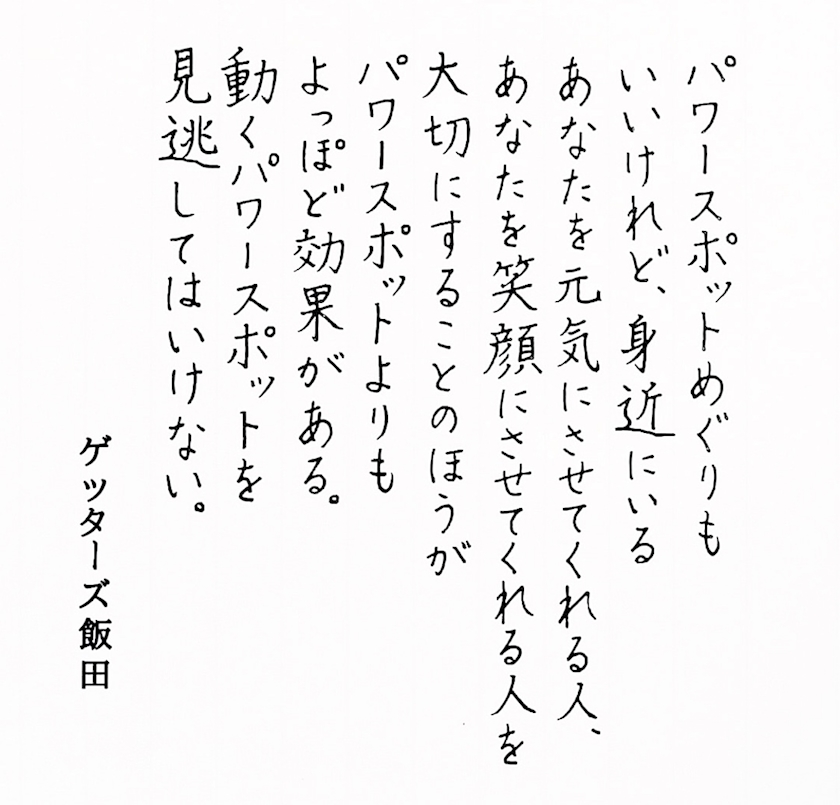 パワースポットめぐりも
いいけれど、身近にいる
あなたを元気にさせてくれる人、
あなたを笑顔にさせてくれる人を
大切にすることのほうが
パワースポットよりも
よっぽど効果がある。
動くパワースポットを
見逃してはいけない。
ゲッターズ飯田